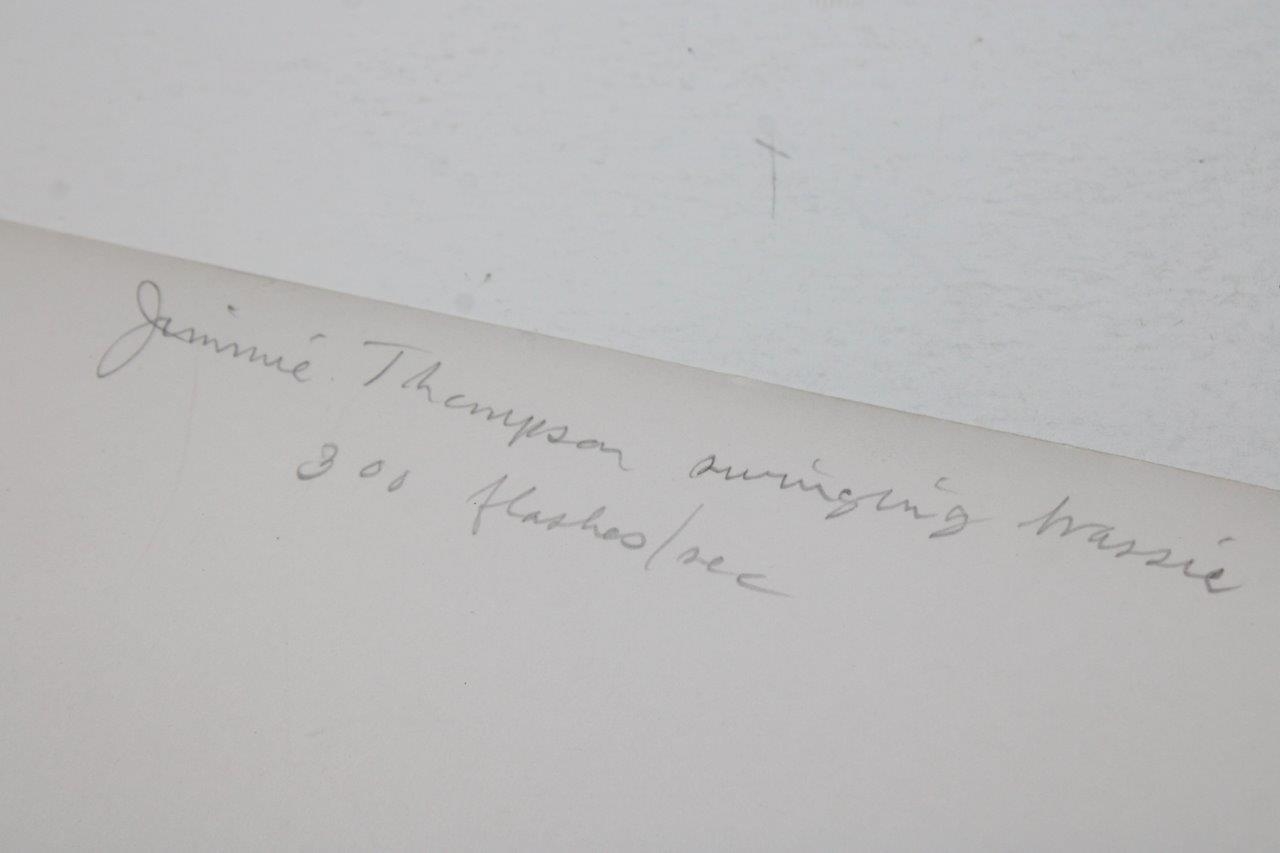 Jimmie Thompson swinging brassie
300 flashes/sec